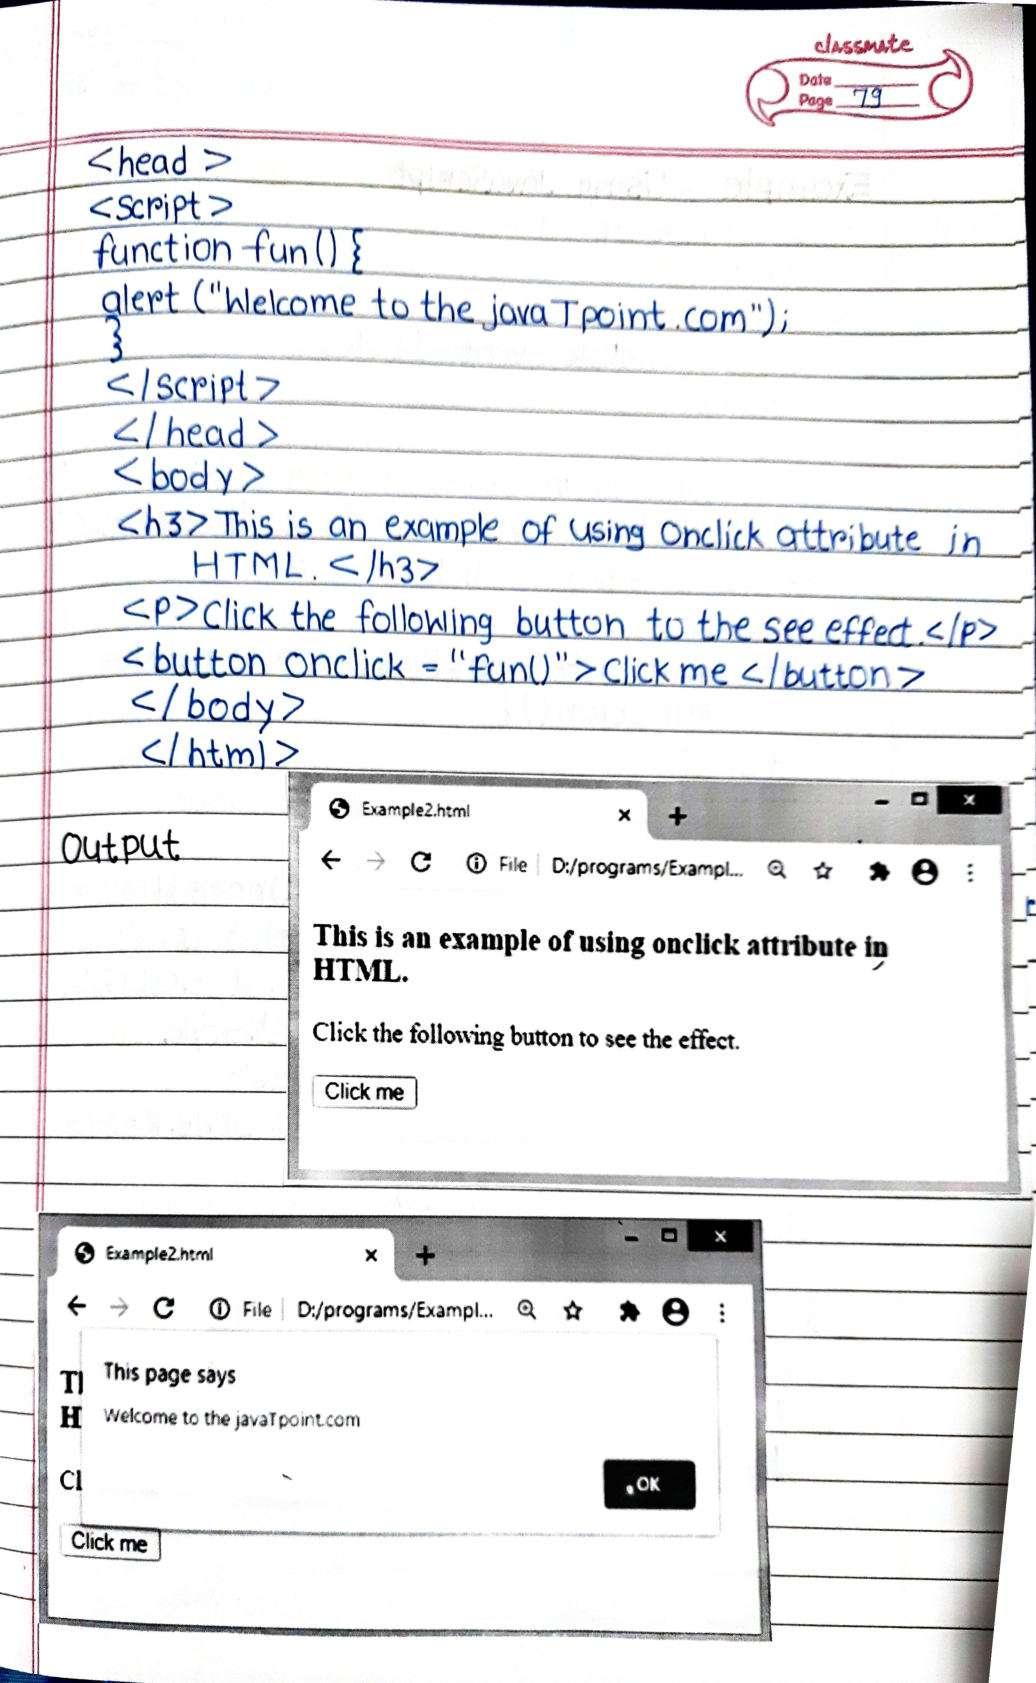 classmate
Date
Page 79
<head>
<script>
function fun() {
alert ("Welcome to the javaTpoint.com");
}
</script>
</head>
<body>
<h3>This is an example of using Onclick attribute in
HTML. </h3>
<p>Click the following button to the see effect.</p>
<button onclick = "fun()">Click me </button>
</body>
</html>
Output
Example2.html
File D:/programs/Exampl...
This is an example of using onclick attribute in
HTML.
Click the following button to see the effect.
Click me
Example2.html
File D:/programs/Exampl...
This page says
Welcome to the javaTpoint.com
OK
Click me